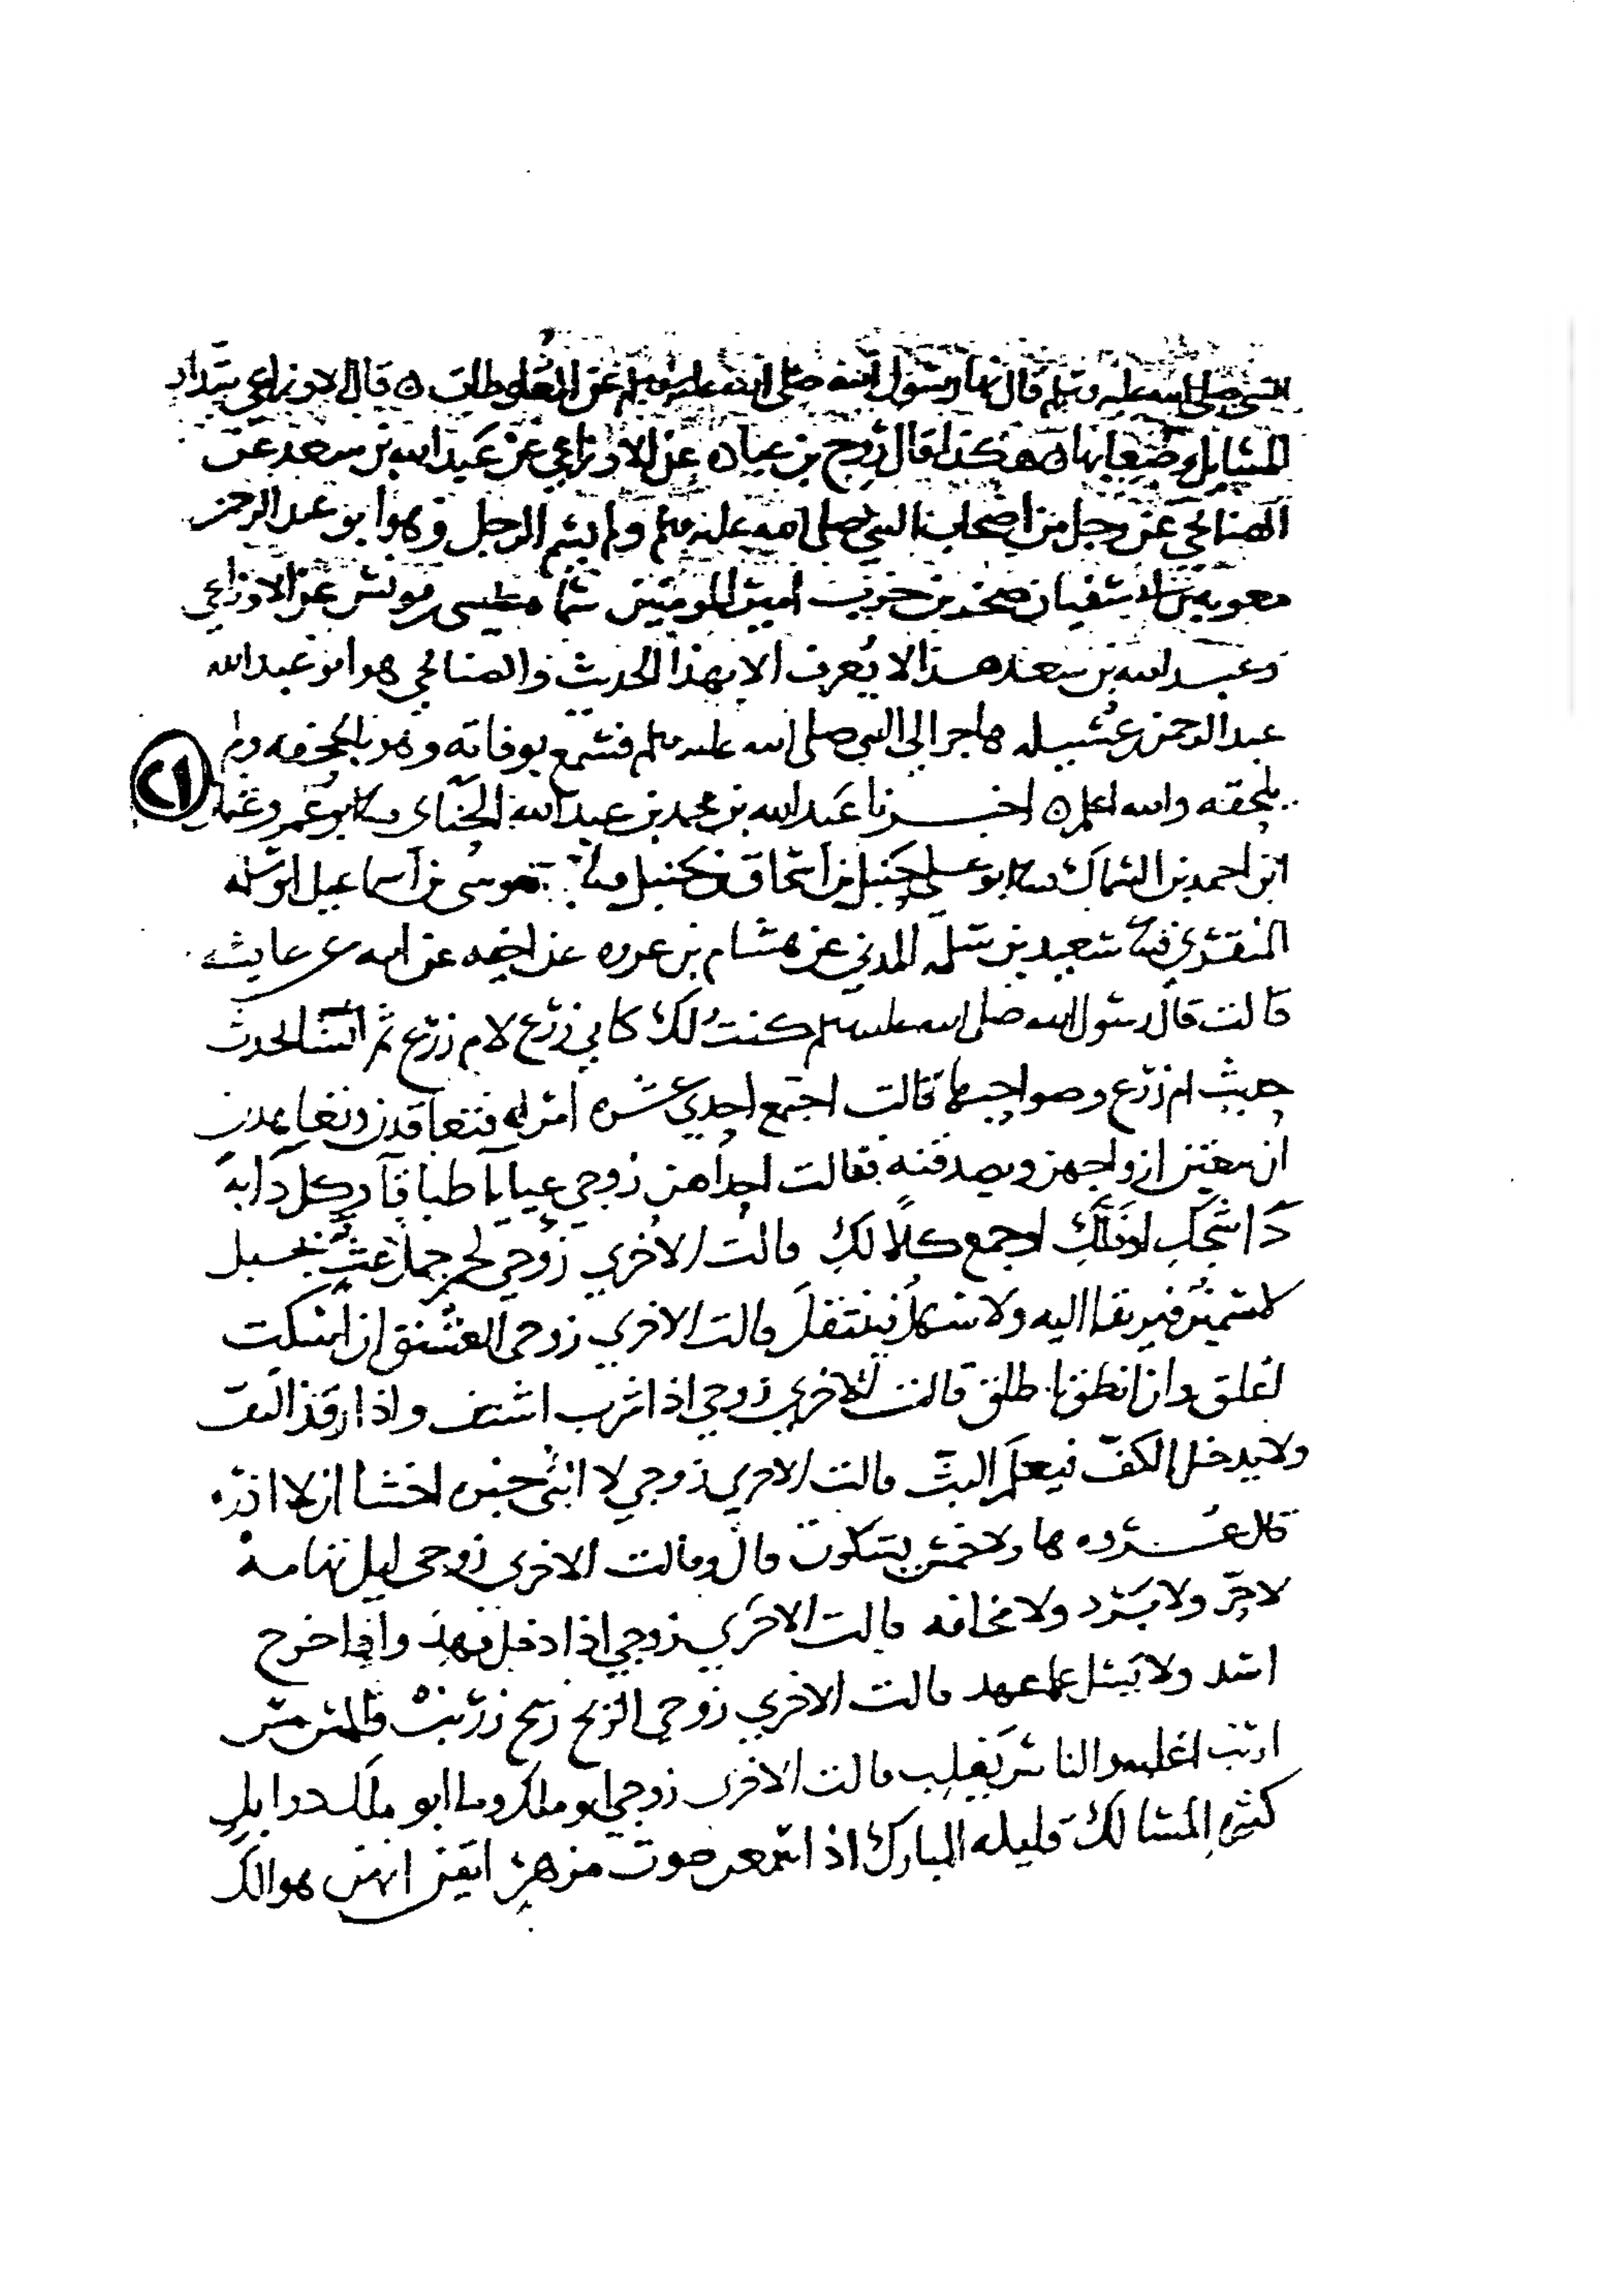 النبي صلى الله عليه وسلم قال نهى رسول الله صلى الله عليه وسلم عن الغلوطات ه قال الاوزاعي شداد
المسايل وصعابها ه هكذا قال روح بن عبادة عن الاوزاعي عن عبد الله بن سعد عن
الصنابحي عن رجل من اصحاب النبي صلى الله عليه وسلم ولم يسم الرجل وهو ابو عبد الرحمن
معويه بن ابي سفيان صخر بن حرب امير المومنين سماه عيسى بن يونس عن الاوزاعي
وعبد الله بن سعد هذا لا يعرف الا بهذا الحديث والصنابحي هو ابو عبد الله
عبد الرحمن بن عسيله هاجر الى النبي صلى الله عليه وسلم فسمع بوفاته وهو بالجحفه ولم
يلحقه والله اعلم ه اخبرنا عبد الله بن محمد بن عبد الله الحناى ثنا ابو عمرو عثمان
٢١
ابن احمد بن السماك ثنا ابو علي حنبل بن اسحاق بن حنبل ثنا موسى بن اسماعيل ابو سلمه
المنقري ثنا سعيد بن سلمه المدني عن هشام بن عروه عن اخيه عن ابيه عن عايشه
قالت قال رسول الله صلى الله عليه وسلم كنت لك كابي زرع لام زرع ثم انشا الحديث
حديث ام زرع وصواحبها قالت اجتمع احدي عشره امراه فتعاقدن وتعاهدن
ان ينعتن ازواجهن ويصدقنه فقالت احداهن زوجي عياياً طباقاً وكل داً به
دا شجك او فلك او جمع كلا لك قالت الاخري زوجي لحم جمل غث بجبل
لا سمين فيرتقا اليه ولا سهل فينتقل قالت الاخري زوجي العشنق ان اسكت
اعلق وان انطق اطلق قالت الاخري زوجي اذا شرب اشتف واذا رقد التف
ولا يدخل الكف فيعلم البث قالت الاخري زوجي لا انثي خبره اخشا ان لا اذره
قال عروه ها ولا خمس يشكون قال وقالت الاخري زوجي ليل تهامة
لا حر ولا برد ولا مخافه قالت الاخري زوجي اذا دخل فهد واذا خرج
اسد ولا يسل عما عهد قالت الاخري زوجي الريح ريح زرنب والمس مس
ارنب اغلبه والناس يغلب قالت الاخري زوجي ابو مالك وما ابو مالك ذو ابل
كثيره المسالك قليله المبارك اذا سمعن صوت مزهر ايقن انهن هوالك